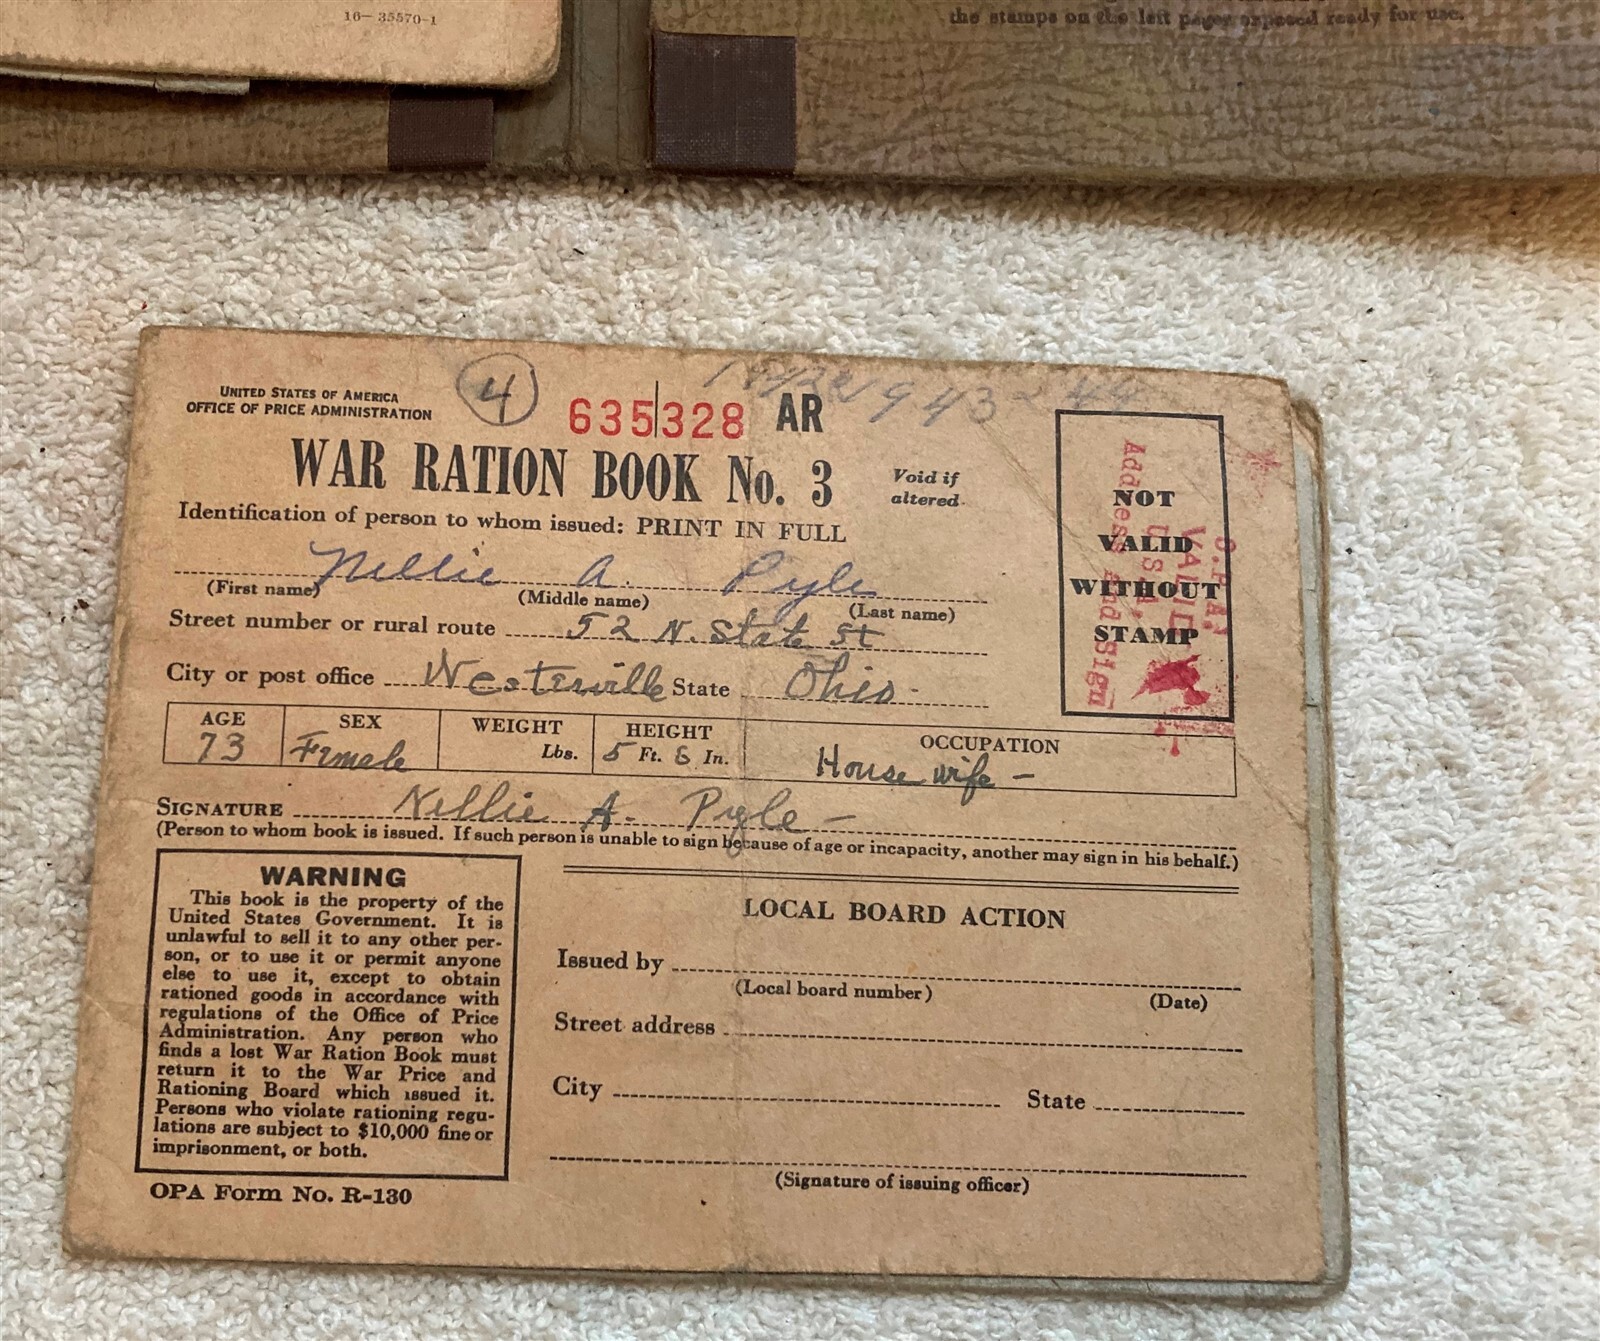 16—35570-1
the stamps on the left pages exposed ready for use.
UNITED STATES OF AMERICA
OFFICE OF PRICE ADMINISTRATION
4
635328 AR
1943-44
WAR RATION BOOK No. 3
Void if
altered
Identification of person to whom issued: PRINT IN FULL
Nellie A. Pyle
(First name) (Middle name) (Last name)
Street number or rural route 52 N. State St
City or post office Westerville State Ohio.
NOT
VALID
WITHOUT
STAMP
O.P.A.
VALID
U.S.A.
Address and Sign
AGE SEX WEIGHT HEIGHT OCCUPATION
73 Female Lbs. 5 Ft. In. House wife -
SIGNATURE Nellie A. Pyle -
(Person to whom book is issued. If such person is unable to sign because of age or incapacity, another may sign in his behalf.)
WARNING
This book is the property of the
United States Government. It is
unlawful to sell it to any other per-
son, or to use it or permit anyone
else to use it, except to obtain
rationed goods in accordance with
regulations of the Office of Price
Administration. Any person who
finds a lost War Ration Book must
return it to the War Price and
Rationing Board which issued it.
Persons who violate rationing regu-
lations are subject to $10,000 fine or
imprisonment, or both.
OPA Form No. R-130
LOCAL BOARD ACTION
Issued by
(Local board number) (Date)
Street address
City State
(Signature of issuing officer)